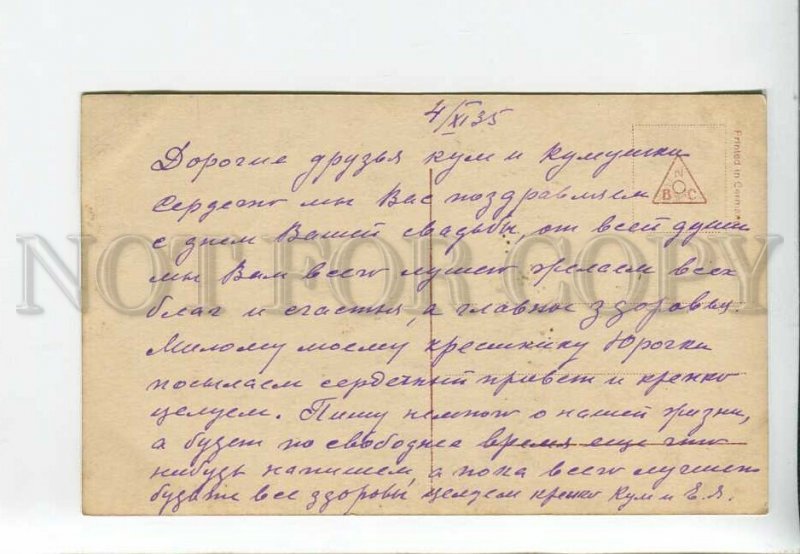 4/XI 35
Дорогие друзья кум и кумушка
Сердечно мы Вас поздравляем
с днем Вашей свадьбы, от всей души
мы Вам всего лучшего желаем всех
благ и счастья, а главное здоровья.
Милому моему крестнику Юрочке
посылаем сердечный привет и крепко
целуем. Пишу немного о нашей жизни,
а будет по свободнее время еще что
нибудь напишем, а пока всего лучшего
будьте все здоровы, целуем крепко Кум и Е.Я.
Printed in
B N C
NOT FOR COPY